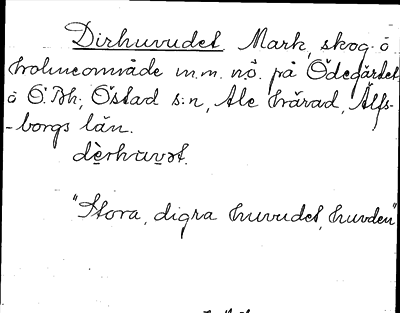 Dirhuvudet Mark, skog o
holmeområde m.m. nö. på Ödegärdet
ö Ö. Bh; Östad s:n, Ale härad, Älfs-
-borgs län.
dèrhu̱vət.
"Stora, digra huvudet, huvden"